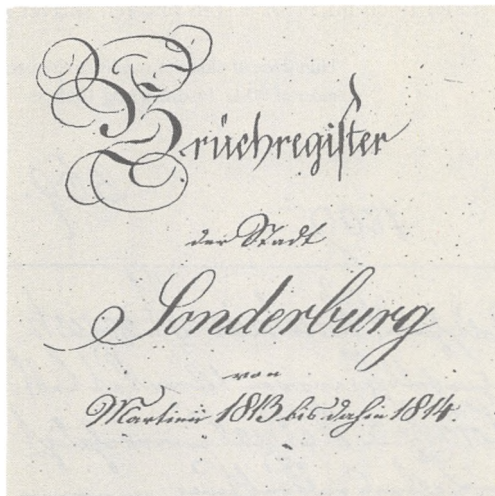 Brüchregister
der Stadt
Sonderburg
von
Martini 1813 bis dahin 1814.